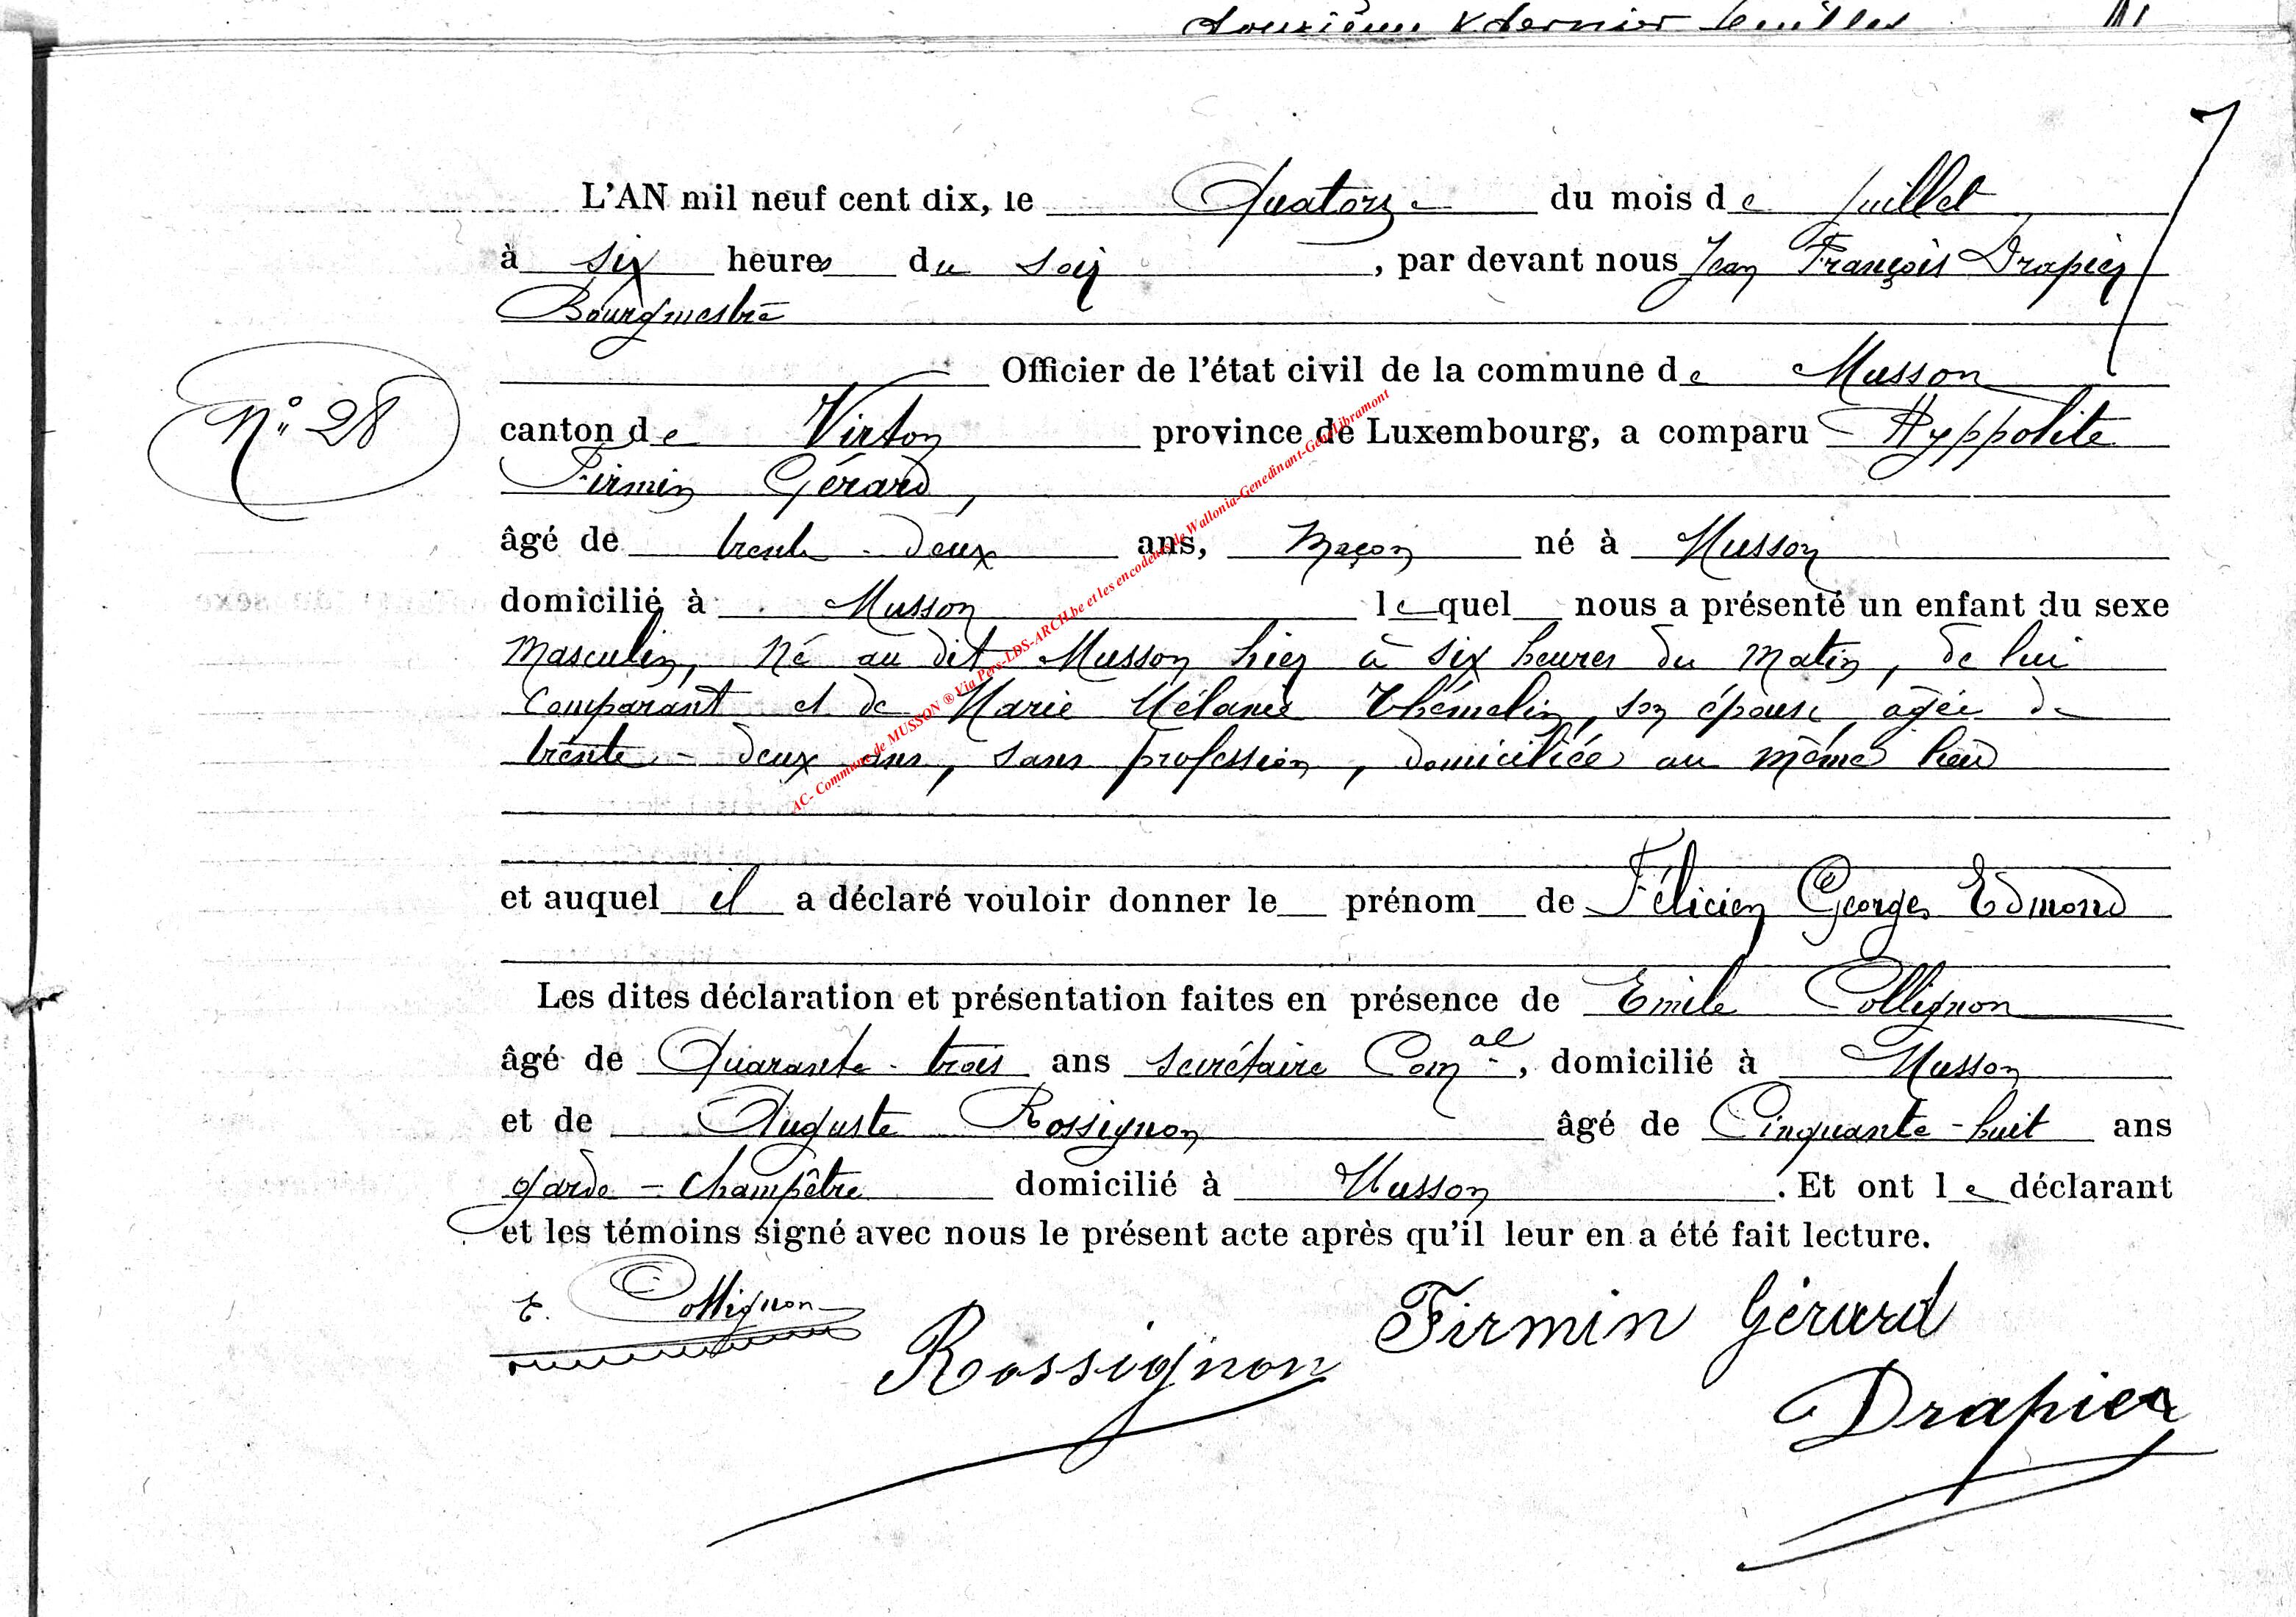 douzième & dernier feuillet
L'AN mil neuf cent dix, le Quatorze du mois de juillet
à six heures du soir, par devant nous Jean François Drapier
Bourgmestre
Officier de l'état civil de la commune de Musson
N° 28
canton de Virton province de Luxembourg, a comparu Hyppolite
Firmin Gérard,
âgé de trente-deux ans, maçon né à Musson
domicilié à Musson lequel nous a présenté un enfant du sexe
masculin, né au dit Musson hier à six heures du matin, de lui
comparant et de Marie Mélanie Thémelin, son épouse, âgée de
trente-deux ans, sans profession, domiciliée au même lieu
et auquel il a déclaré vouloir donner le prénom de Félicien Georges Edmond
Les dites déclaration et présentation faites en présence de Emile Collignon
âgé de Quarante-trois ans secrétaire Com.al, domicilié à Musson
et de Auguste Rossignon âgé de Cinquante-huit ans
garde-champêtre domicilié à Musson. Et ont le déclarant
et les témoins signé avec nous le présent acte après qu'il leur en a été fait lecture.
E. Collignon
Rossignon
Firmin Gérard
Drapier
AC- Commune de MUSSON ® Via Pers-LDS-ARCH.be et les encodeurs de Wallonia-Genedinant-GeneLibramont